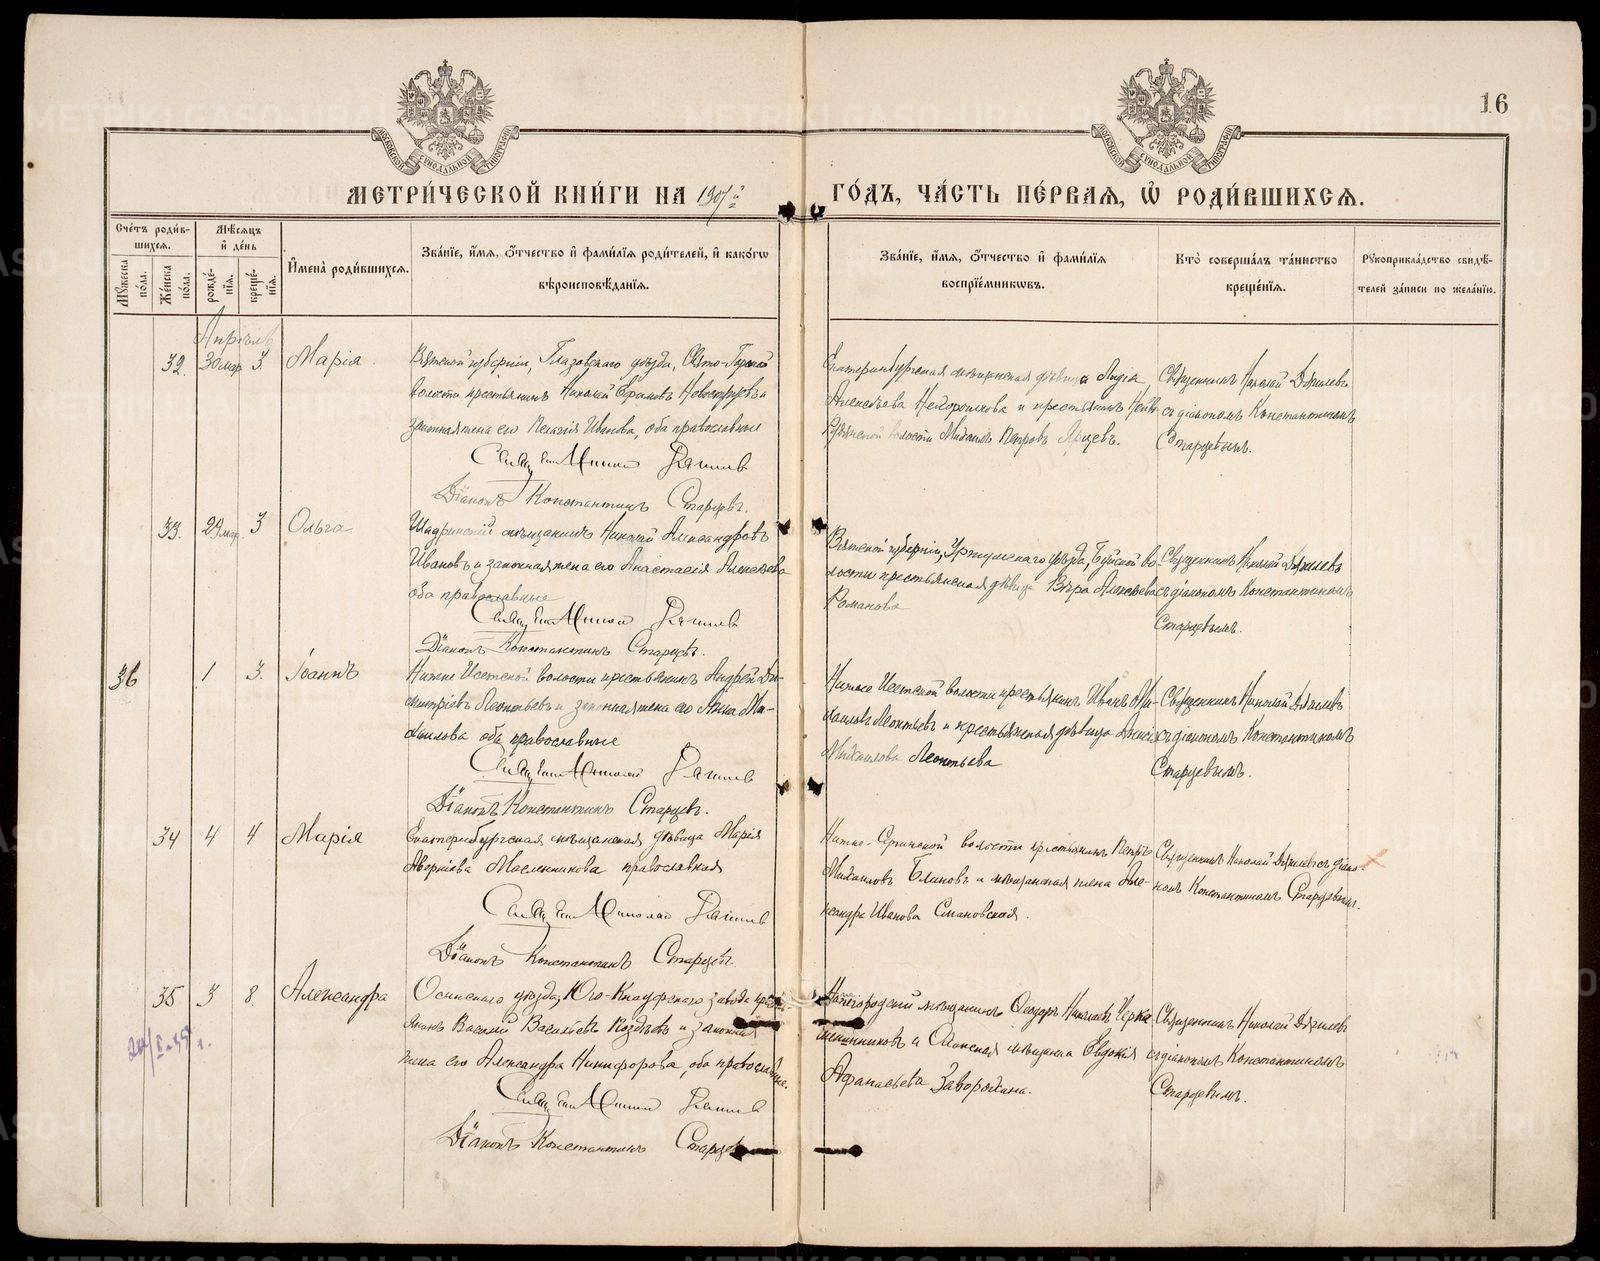 16
МЕТРИ́ЧЕСКОЙ КНИ́ГИ НА 1907й
ГО́ДЪ, ЧА́СТЬ ПЕ́РВАѦ, Ѡ҆ РОДИ́ВШИХСѦ.
Сче́тъ роди́в-
шихсѧ.
Мѣ́сѧцъ
и҆ де́нь
Мꙋжеска по́ла.
Же́нска по́ла.
рожде́-
нїѧ.
креще́-
нїѧ.
И҆мена̀ роди́вшихсѧ.
Зва́нїе, и҆́мѧ, ѻ҆́тчество и҆ фами́лїѧ роди́телей, и҆ како́гѡ
вѣроисповѣ́данїѧ.
Зва́нїе, и҆́мѧ, ѻ҆́тчество и҆ фами́лїѧ
воспрїе́мникѡвъ.
Кто̀ соверша́лъ та́инство
креще́нїѧ.
Рꙋкоприкла́дство свидѣ́-
телей за́писи по жела́нїю.
Апрѣль
32. 30 мар 3 Марія.
Вятской губерніи, Глазовскаго уѣзда, Свято-Горской
волости крестьянинъ Николай Ефимовъ и
законная жена его Пелагія Иванова, оба православные
Священ Николай
Діаконъ Константинъ Старцевъ.
Екатеринбургская мѣщанская дѣвица Лидія
Алексѣева и крестьянинъ
волости Михаилъ Петровъ Ярцевъ.
Священникъ Николай
съ діакономъ Константиномъ
Старцевымъ.
33. 29 мар 3 Ольга
Шадринскій мѣщанинъ Николай Александровъ
Ивановъ и законная жена его Анастасія Алексѣева
оба православные
Священ Николай
Діаконъ Константинъ Старцевъ.
Вятской губерніи, Уржумскаго уѣзда, Буйской во-
лости крестьянская дѣвица Вѣра Алексѣева
Романова
Священникъ Николай
съ діакономъ Константиномъ
Старцевымъ.
36 1 3. Іоаннъ
Нижне Исетской волости крестьянинъ Андрей Ди-
митріевъ Леонтьевъ и законная жена его Анна Ми-
хаилова оба православные
Священ Николай
Діаконъ Константинъ Старцевъ.
Нижне Исетской волости крестьянинъ Иванъ Ми-
хаиловъ Леонтьевъ и крестьянская дѣвица Анисія
Михаилова Леонтьева
Священникъ Николай
съ діакономъ Константиномъ
Старцевымъ.
34 4 4 Марія
Екатеринбургская мѣщанская дѣвица Марія
Масленникова православная
Священ Николай
Діаконъ Константинъ Старцевъ
Нижне-Сергинской волости крестьянинъ Петръ
Михаиловъ Блиновъ и мѣщанская жена Але-
ксандра Иванова Смановская.
Священникъ Николай съ діако-
номъ Константиномъ Старцевымъ.
35 3 8 Александра
Осинскаго уѣзда, Юго-Кнауфскаго завода кресть-
янинъ Василій Васильевъ и законная
жена его Александра Никифорова, оба православные.
Священ Николай
Діаконъ Константинъ Старцевъ
Нижегородскій мѣщанинъ Ѳеодоръ Николаевъ Черка-
шенниковъ и Осинская мѣщанка Евдокія
Афанасьева Заворохина.
Священникъ Николай
съ діакономъ Константиномъ
Старцевымъ.